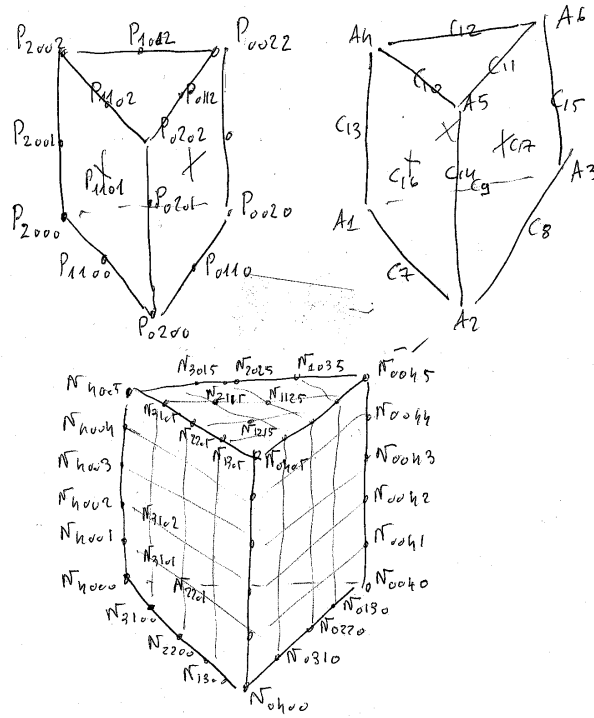 P1012
P2002 P0022
P1102 P0112
P0202
P2001
P1101
P0201
P2000 P0020
P1100 P0110
P0200
A6
C12
A4
C11
C10
A5
C15
C13
C17
C14
C16
C9
A3
A1
C8
C7
A2
N3015 N2025 N1035
N4005 N0045
N3105 N2115 N1125
N2205 N1215
N1305 N0405
N4004 N0044
N4003 N0043
N4002 N0042
N3102
N4001 N0041
N3101
N4000 N2201 N0040
N3100 N0130
N2200 N0220
N0310
N1300
N0400